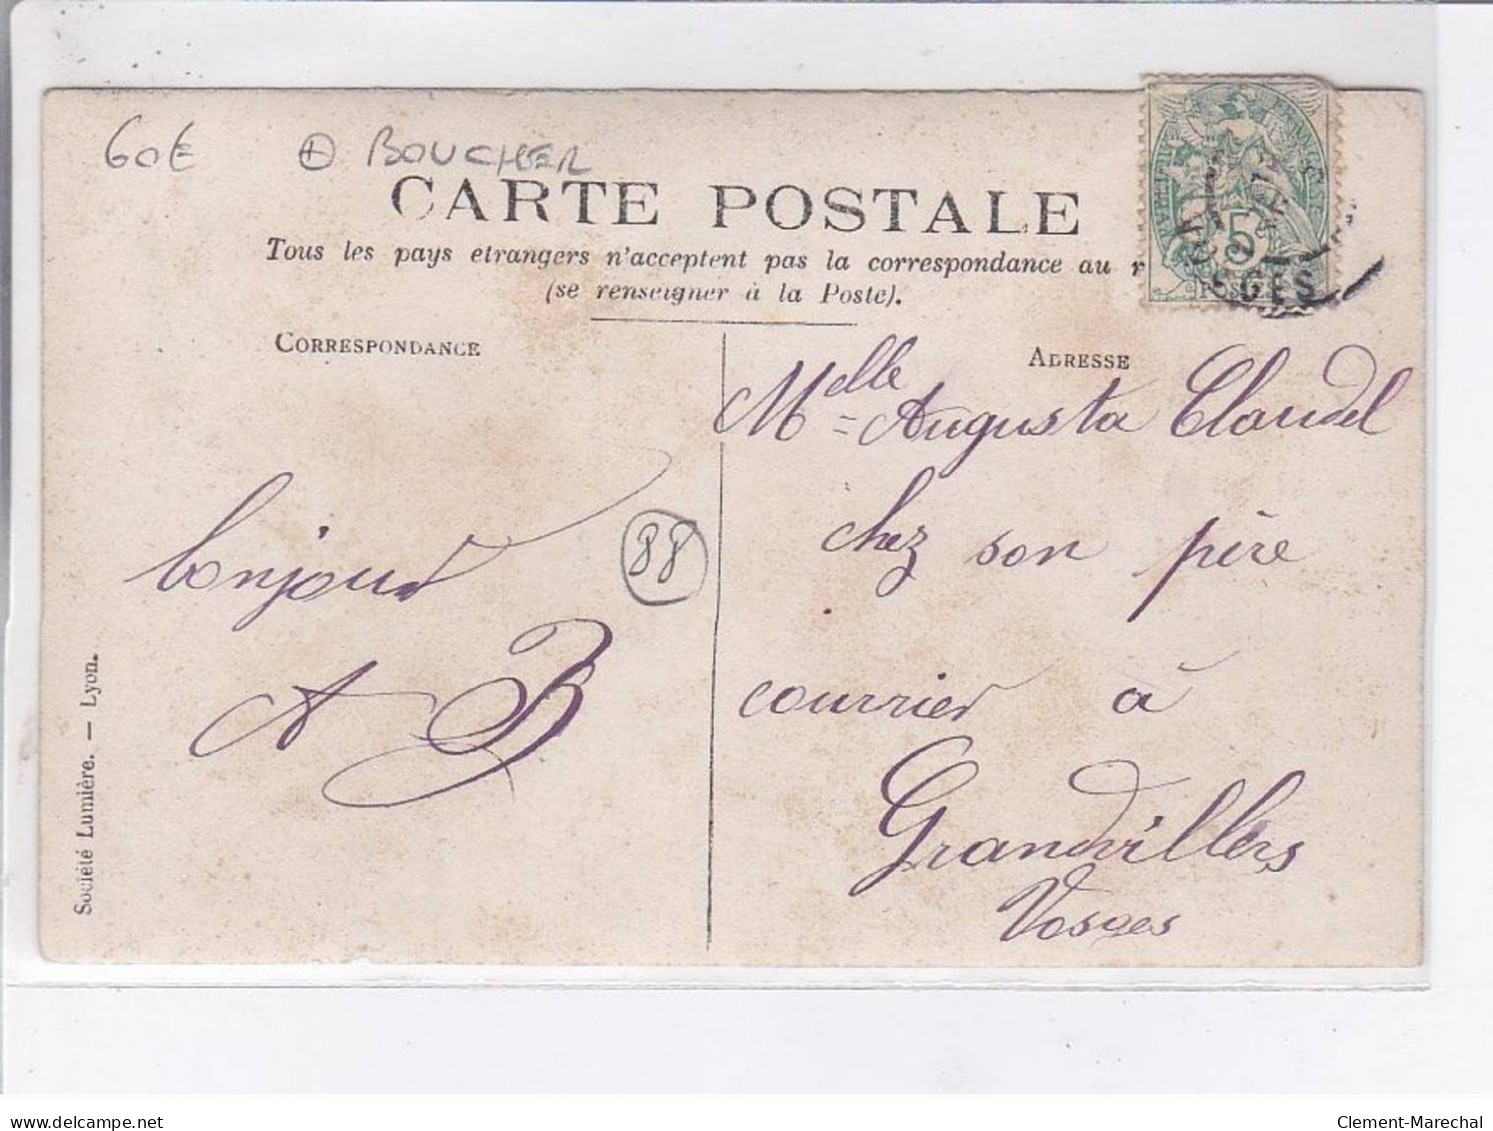 60€ BOUCHER
CARTE POSTALE
Tous les pays etrangers n'acceptent pas la correspondance au
(se renseigner à la Poste).
CORRESPONDANCE
ADRESSE
5
GES
bonjour
A B
88
Melle Augusta Claudel
chez son père
courrier à
Grandvillers
Vosges
Société Lumière. — Lyon.
delcampe.net
Clement-Marechal